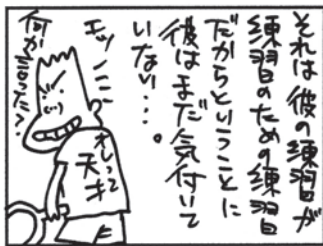 それは彼の練習が
練習のための練習
だからということに
彼はまだ気付いて
いない…。
エッ
何か言った?
オレって
天才